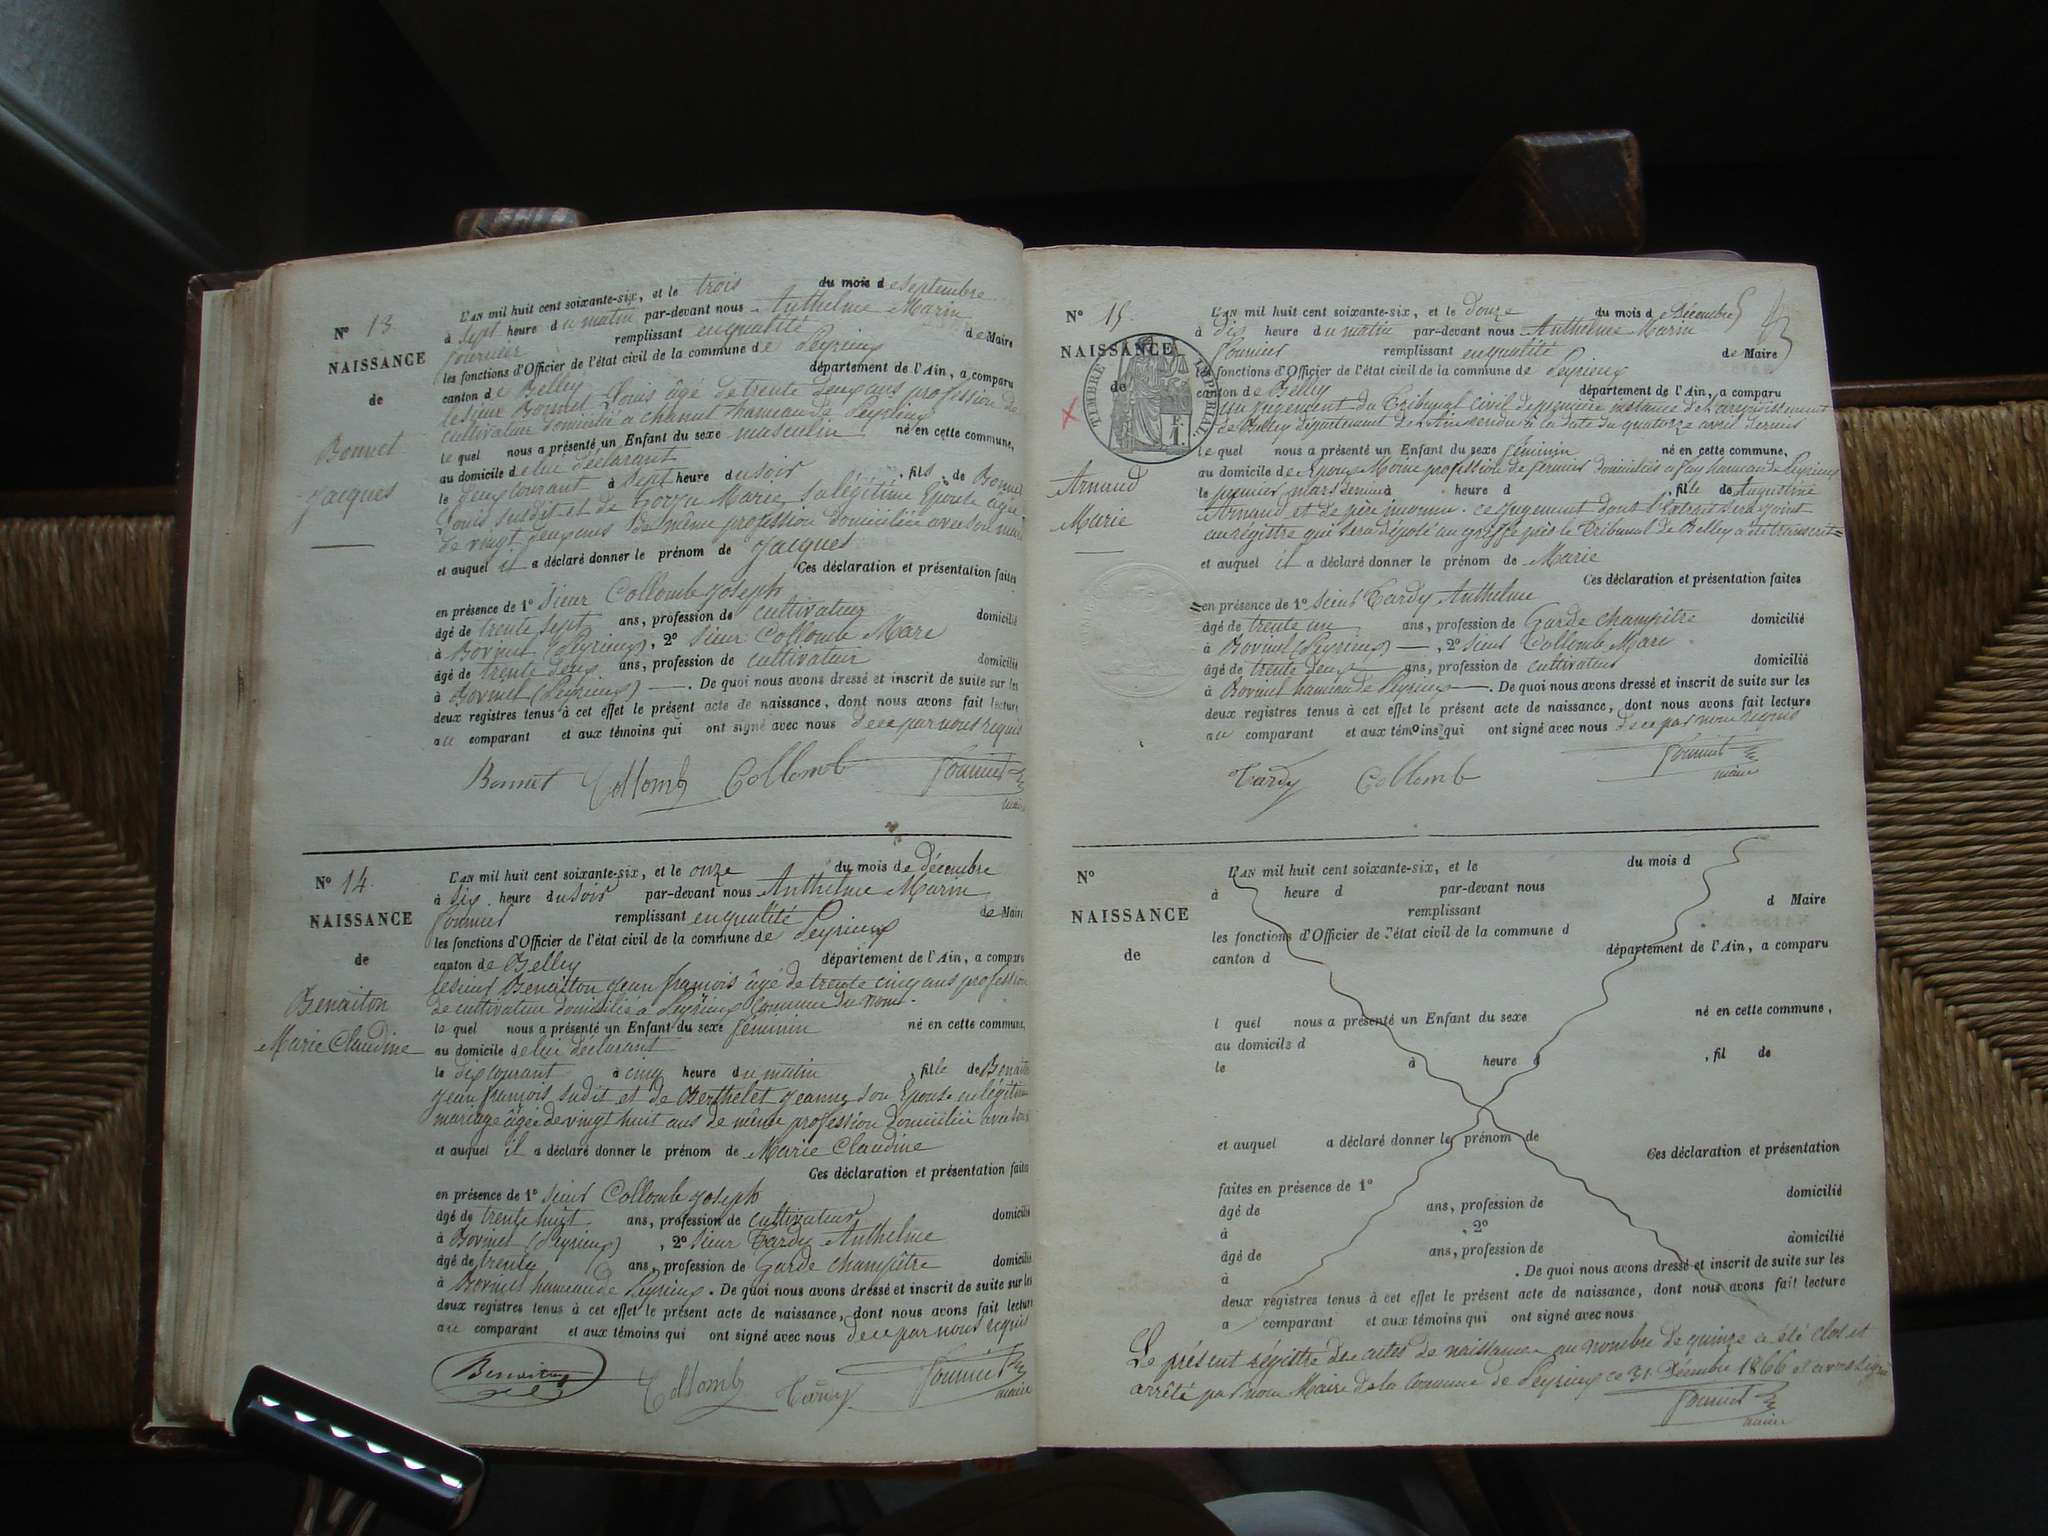 N° 13
NAISSANCE
de
Bonnet
Jacques
L'AN mil huit cent soixante-six, et le trois du mois de Septembre
à sept heure du matin par-devant nous Anthelme Marin
Fournier remplissant en qualité de Maire
les fonctions d'Officier de l'état civil de la commune de Peyrieux
canton de Belley département de l'Ain, a comparu
le sieur Bonnet Louis âgé de trente deux ans profession de
cultivateur domicilié à chemut hameau de Peyrieux
le quel nous a présenté un Enfant du sexe masculin né en cette commune,
au domicile de lui déclarant
le deux courant à sept heure du soir, fils de Bonnet
Louis susdit et de Marie, sa légitime Epouse âgée
de vingt deux ans de même profession domiciliée avec son mari
et auquel il a déclaré donner le prénom de Jacques
Ces déclaration et présentation faites
en présence de 1° sieur Collomb Joseph
âgé de trente sept ans, profession de cultivateur domicilié
à Bovinel (Peyrieux), 2° sieur Collomb Marc
âgé de trente deux ans, profession de cultivateur domicilié
à Bovinel (Peyrieux) —. De quoi nous avons dressé et inscrit de suite sur les
deux registres tenus à cet effet le présent acte de naissance, dont nous avons fait lecture
au comparant et aux témoins qui ont signé avec nous de ce par nous requis
Bonnet Collomb Collomb Fournier
maire
N° 14
NAISSANCE
de
Benaiton
Marie Claudine
L'AN mil huit cent soixante-six, et le onze du mois de décembre
à six heure du soir par-devant nous Anthelme Marin
Fournier remplissant en qualité de Maire
les fonctions d'Officier de l'état civil de la commune de Peyrieux
canton de Belley département de l'Ain, a comparu
le sieur Benaiton Jean françois âgé de trente cinq ans profession
de cultivateur domicilié à Peyrieux Commune du nom.
le quel nous a présenté un Enfant du sexe féminin né en cette commune,
au domicile de lui déclarant
le dix courant à cinq heure du matin, fille de Benaiton
Jean françois sudit et de Berthelet Jeanne son Epouse en légitime
mariage âgée de vingt huit ans de même profession domiciliée avec lui
et auquel il a déclaré donner le prénom de Marie Claudine
Ces déclaration et présentation faites
en présence de 1° sieur Collomb Joseph
âgé de trente huit ans, profession de cultivateur domicilié
à Bovinel (Peyrieux), 2° sieur Tardy Anthelme
âgé de trente ans, profession de Garde champêtre domicilié
à Bovinel hameau de Peyrieux. De quoi nous avons dressé et inscrit de suite sur les
deux registres tenus à cet effet le présent acte de naissance, dont nous avons fait lecture
au comparant et aux témoins qui ont signé avec nous de ce par nous requis
Benaiton Collomb Tardy Fournier
maire
N° 15
NAISSANCE
de
TIMBRE IMPERIAL
F.
1.
Arnaud
Marie
L'AN mil huit cent soixante-six, et le douze du mois de Décembre
à dix heure du matin par-devant nous Anthelme Marin
Fournier remplissant en qualité de Maire
les fonctions d'Officier de l'état civil de la commune de Peyrieux
canton de Belley département de l'Ain, a comparu
Un jugement du Tribunal Civil de première instance de l'arrondissement
de Belley département de l'Ain rendu à la date du quatorze avril dernier
le quel nous a présenté un Enfant du sexe féminin né en cette commune,
au domicile de Epoux Moine profession de fermier domiciliés à fay hameau de Peyrieux
le premier mars dernier à heure d , fille de Augustine
Arnaud et de père inconnu. ce jugement dont l'Extrait sera joint
au régistre qui sera déposé au greffe près le Tribunal de Belley a été transcrit=
et auquel il a déclaré donner le prénom de Marie
Ces déclaration et présentation faites
=en présence de 1° sieur Tardy Anthelme
âgé de trente un ans, profession de Garde champêtre domicilié
à Bovinel (Peyrieux) —, 2° sieur Collomb Marc
âgé de trente deux ans, profession de cultivateur domicilié
à Bovinel hameau de Peyrieux —. De quoi nous avons dressé et inscrit de suite sur les
deux registres tenus à cet effet le présent acte de naissance, dont nous avons fait lecture
au comparant et aux témoins qui ont signé avec nous de ce par nous requis
Tardy Collomb Fournier
maire
N°
NAISSANCE
de
L'AN mil huit cent soixante-six, et le du mois d
à heure d par-devant nous
remplissant d Maire
les fonctions d'Officier de l'état civil de la commune d
canton d département de l'Ain, a comparu
l quel nous a présenté un Enfant du sexe né en cette commune,
au domicils d
le à heure d , fil de
et auquel a déclaré donner le prénom de
Ces déclaration et présentation
faites en présence de 1° domicilié
âgé de ans, profession de
à , 2° domicilié
âgé de ans, profession de
à . De quoi nous avons dressé et inscrit de suite sur les
deux registres tenus à cet effet le présent acte de naissance, dont nous avons fait lecture
a comparant et aux témoins qui ont signé avec nous
Le présent régistre des actes de naissance au nombre de quinze a été clos et
arrêté par nous Maire de la Commune de Peyrieux ce 31 Décembre 1866 et avons signé
Fournier
maire